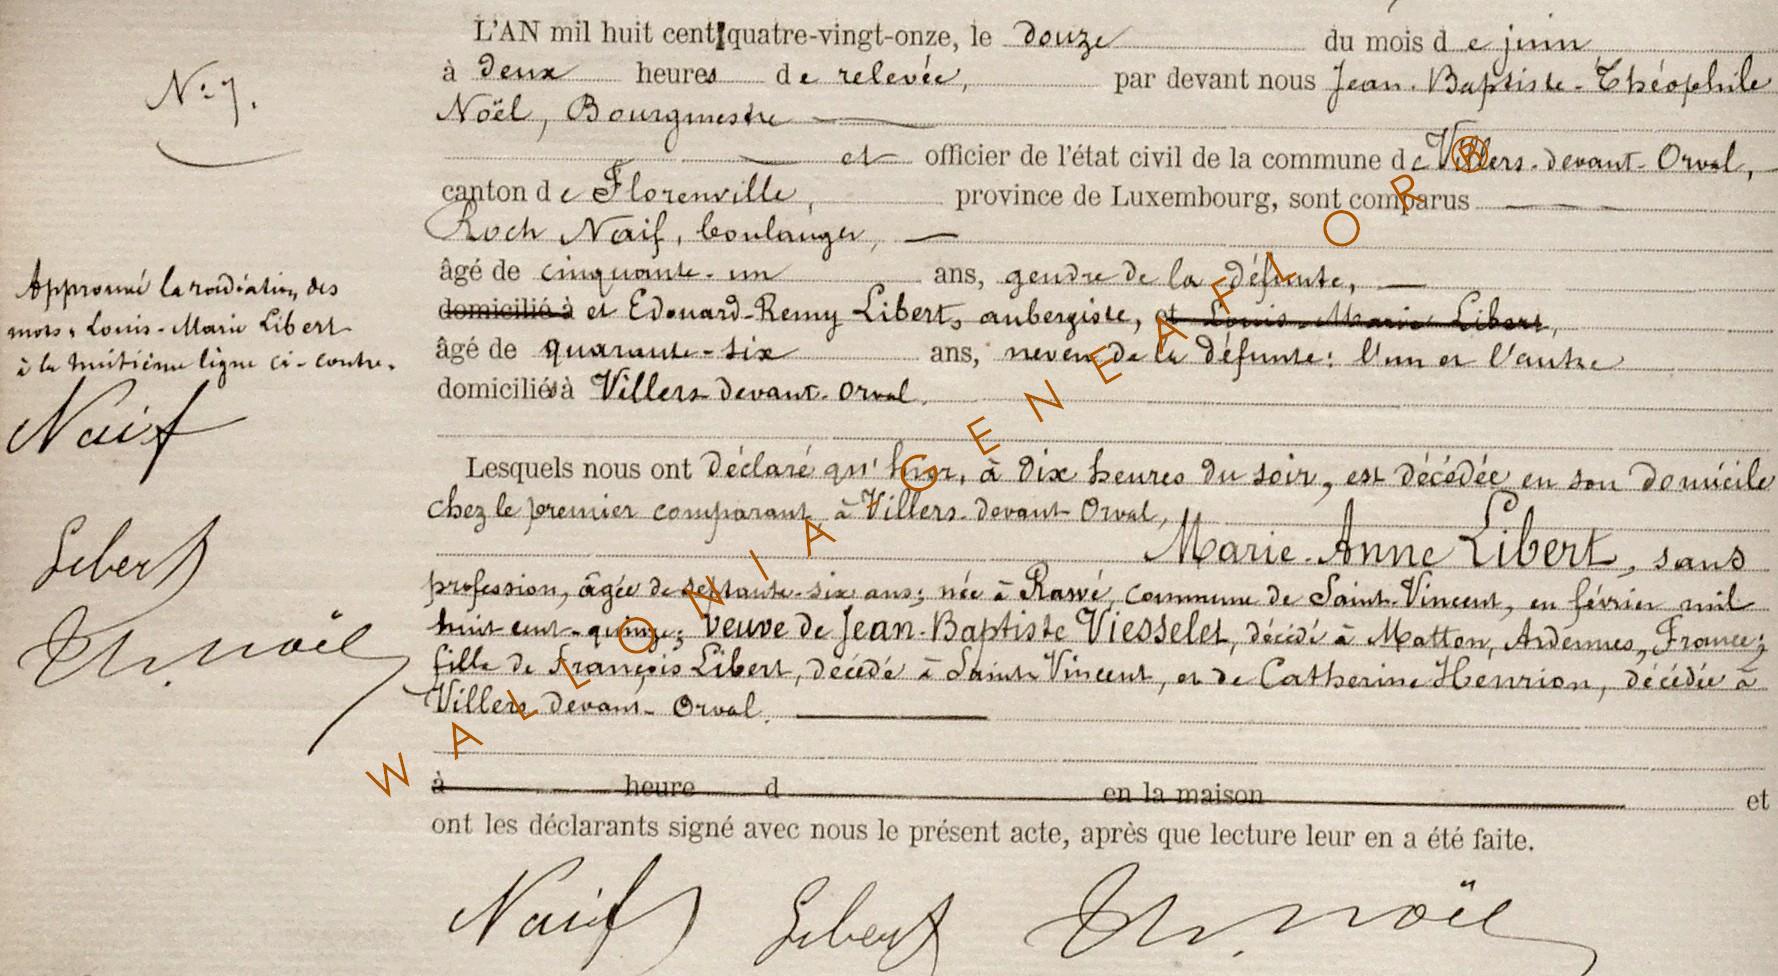 N.º 7.
L'AN mil huit cent quatre-vingt-onze, le douze du mois de juin
à deux heures de relevée, par devant nous Jean-Baptiste-Théophile
Noël, Bourgmestre
et officier de l'état civil de la commune de Villers-devant-Orval,
canton de Florenville, province de Luxembourg, sont comparus
Roch Naif, boulanger,
âgé de cinquante-un ans, gendre de la défunte,
domicilié à et Edouard-Remy Libert, aubergiste, et Louis-Marie Libert,
âgé de quarante-six ans, neveu de la défunte; l'un et l'autre
domiciliés à Villers-devant-Orval.
Approuvé la radiation des
mots: Louis-Marie Libert
à la huitième ligne ci-contre.
Naif
Libert
Th. Noël
Lesquels nous ont déclaré qu'hier, à dix heures du soir, est décédée en son domicile
chez le premier comparant à Villers-devant-Orval,
Marie-Anne Libert, sans
profession, âgée de septante-six ans; née à Rawé, commune de Saint-Vincent, en février mil
huit cent-quinze; veuve de Jean-Baptiste Viesselet, décédé à Matton, Ardennes, France;
fille de François Libert, décédé à Saint-Vincent, et de Catherine Henrion, décédée à
Villers-devant-Orval.
à heure d en la maison et
ont les déclarants signé avec nous le présent acte, après que lecture leur en a été faite.
Naif Libert Th. Noël
WALLONIA GENEAFLOR ®